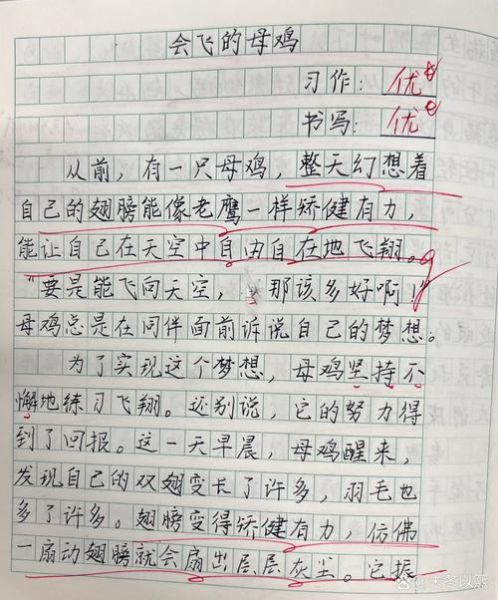 会飞的母鸡
习作：优
书写：优
从前，有一只母鸡，整天幻想着
自己的翅膀能像老鹰一样矫健有力，
能让自己在天空中自由自在地飞翔。
“要是能飞向天空，那该多好啊”
母鸡总是在同伴面前诉说自己的梦想。
为了实现这个梦想，母鸡坚持不
懈地练习飞翔。还别说，它的努力得
到了回报。这一天早晨，母鸡醒来，
发现自己的双翅变长了许多，羽毛也
多了许多。翅膀变得矫健有力，仿佛
一扇动翅膀就会扇出层层灰尘。它振